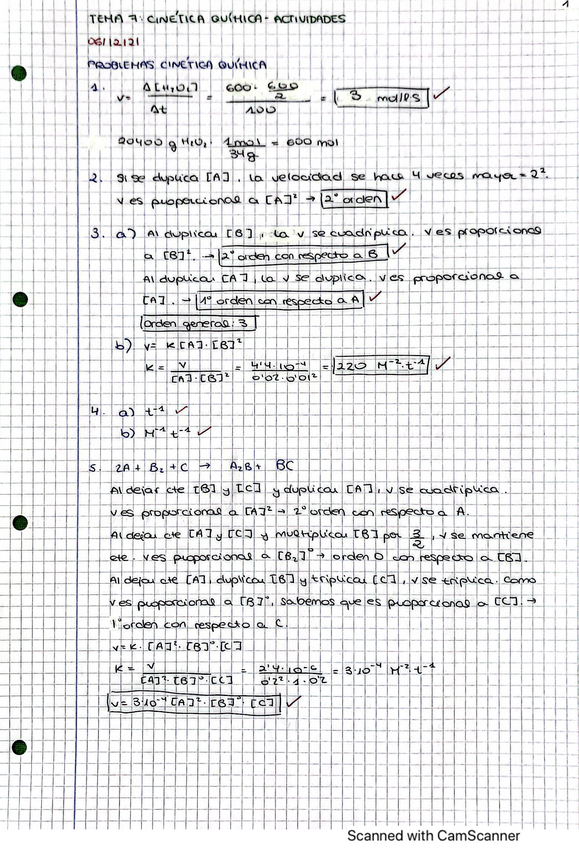 1
TEMA 7: CINÉTICA QUÍMICA - ACTIVIDADES
06/12/21
PROBLEMAS CINÉTICA QUÍMICA
1. v = Δ[H₂O₂] / Δt = 600 · 600/2 / 100 = 3 mol/L·S ✓
20400 g H₂O₂ · 1 mol / 34 g = 600 mol
2. Si se duplica [A], la velocidad se hace 4 veces mayor = 2².
V es proporcional a [A]² → 2º orden ✓
3. a) Al duplicar [B], la v se cuadriplica. v es proporcional
a [B]². → 2º orden con respecto a B ✓
Al duplicar [A], la v se duplica. v es proporcional a
[A]. → 1º orden con respecto a A ✓
orden general: 3
b) v = K [A]·[B]²
K = v / [A]·[B]² = 4'4·10⁻⁴ / 0'02·0'01² = 220 M⁻²·t⁻¹ ✓
4. a) t⁻¹ ✓
b) M⁻¹ t⁻¹ ✓
5. 2A + B₂ + C → A₂B + BC
Al dejar cte [B] y [C] y duplicar [A], v se cuadriplica.
v es proporcional a [A]² → 2º orden con respecto a A.
Al dejar cte [A] y [C] y multiplicar [B] por 3/2, v se mantiene
cte. v es proporcional a [B₂]⁰ → orden 0 con respecto a [B].
Al dejar cte [A], duplicar [B] y triplicar [C], v se triplica. Como
v es proporcional a [B]⁰, sabemos que es proporcional a [C]. →
1º orden con respecto a C.
v = K · [A]² · [B]⁰ · [C]
K = v / [A]²·[B]⁰·[C] = 2'4·10⁻⁶ / 0'2²·1·0'2 = 3·10⁻⁴ M⁻²·t⁻¹
v = 3·10⁻⁴ [A]²·[B]⁰·[C] ✓
Scanned with CamScanner